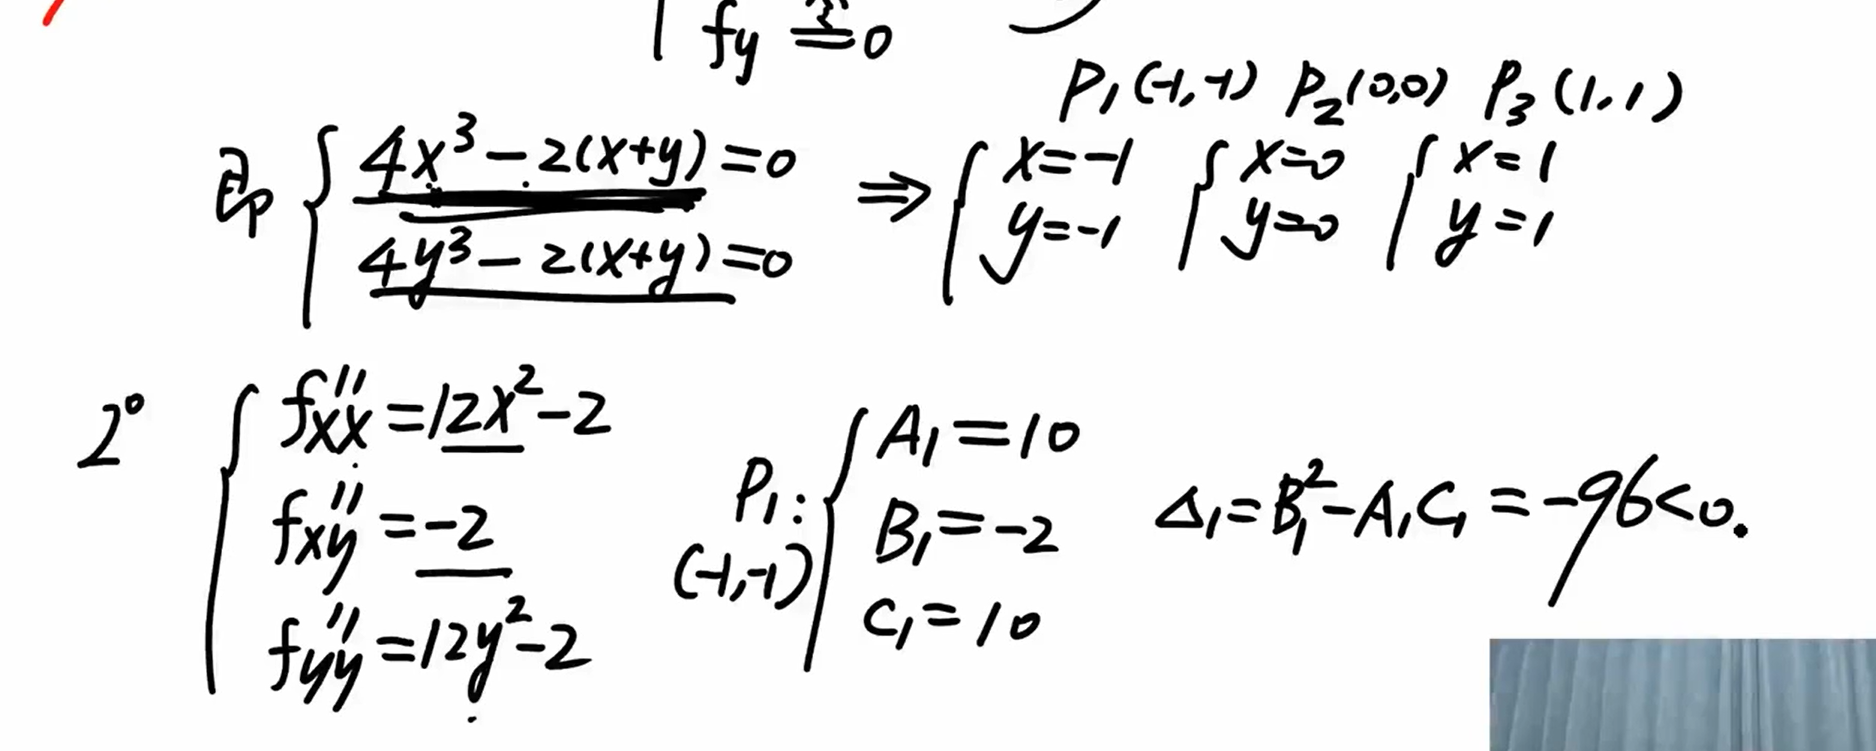 fy = 0
P₁(-1,-1) P₂(0,0) P₃(1,1)
即 { 4x³ - 2(x+y) = 0 ⇒ { x=-1 { x=0 { x=1
4y³ - 2(x+y) = 0 y=-1 y=0 y=1
2° { f''xx = 12x² - 2
f''xy = -2
f''yy = 12y² - 2
P₁: (-1,-1) { A₁ = 10
B₁ = -2
C₁ = 10
Δ₁ = B₁² - A₁C₁ = -96 < 0.